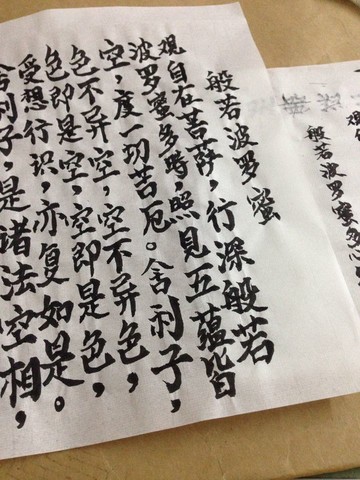 般若波罗蜜
观自在菩萨，行深般若
波罗蜜多時，照見五蕴皆
空，度一切苦厄。舍利子，
色不异空，空不异色，
色即是空，空即是色，
受想行识，亦复如是。
舍利子，是诸法空相，
般若波罗蜜多心
观